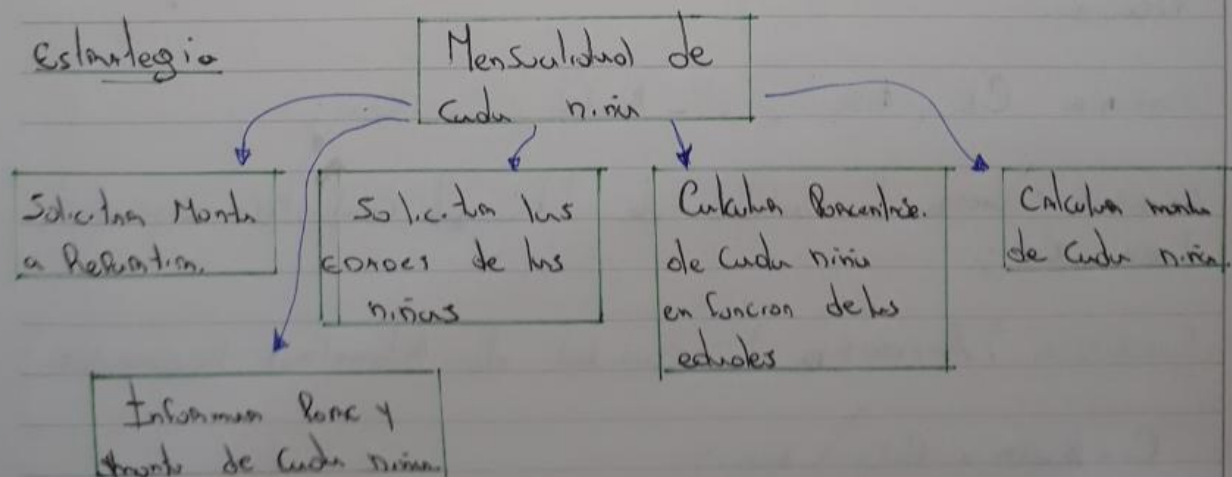 Estrategia
Mensualidad de
Cada niña
Solicitar Monto
a Repartir.
Solicitar las
edades de las
niñas
Calcular Porcentaje.
de Cada niña
en funcion de las
edades
Calcular monto
de Cada niña.
Informar Porc y
monto de Cada niña.